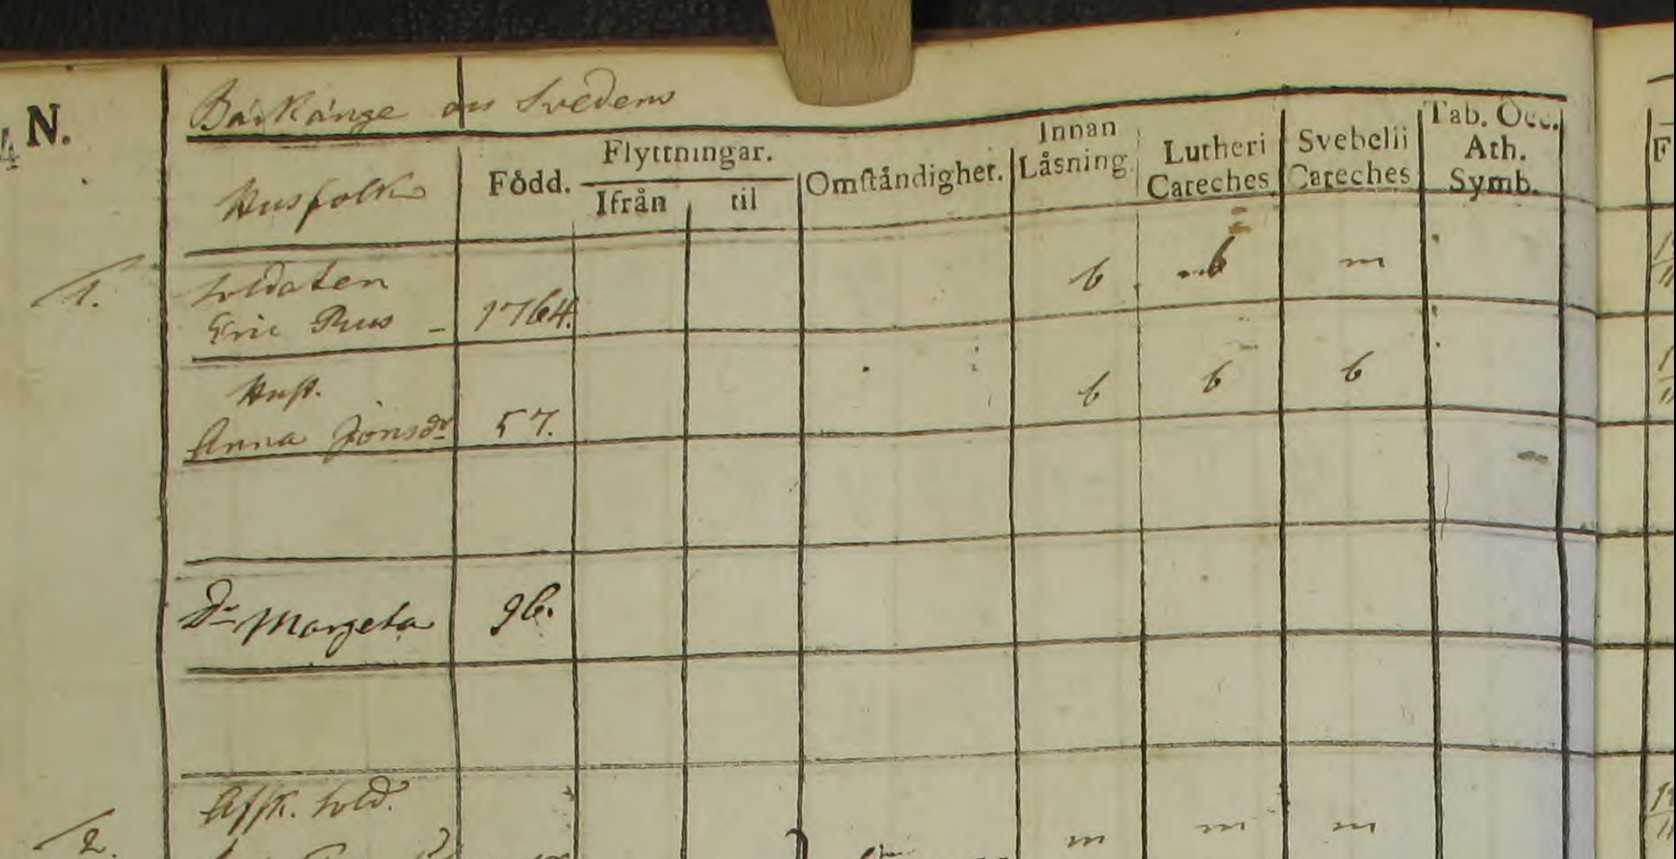 N.
Husfolk
Född.
Flyttningar.
Ifrån til
Omståndighet.
Innan
Låsning.
Lutheri
Cateches
Svebelii
Cateches
Tab. Occ.
Ath.
Symb.
1.
Soldaten
Eric Rus - 1764. b b m
Hust.
Anna Jönsdr 57. b b b
Dr Margeta 96.
Afsk. Sold.
2. m m m